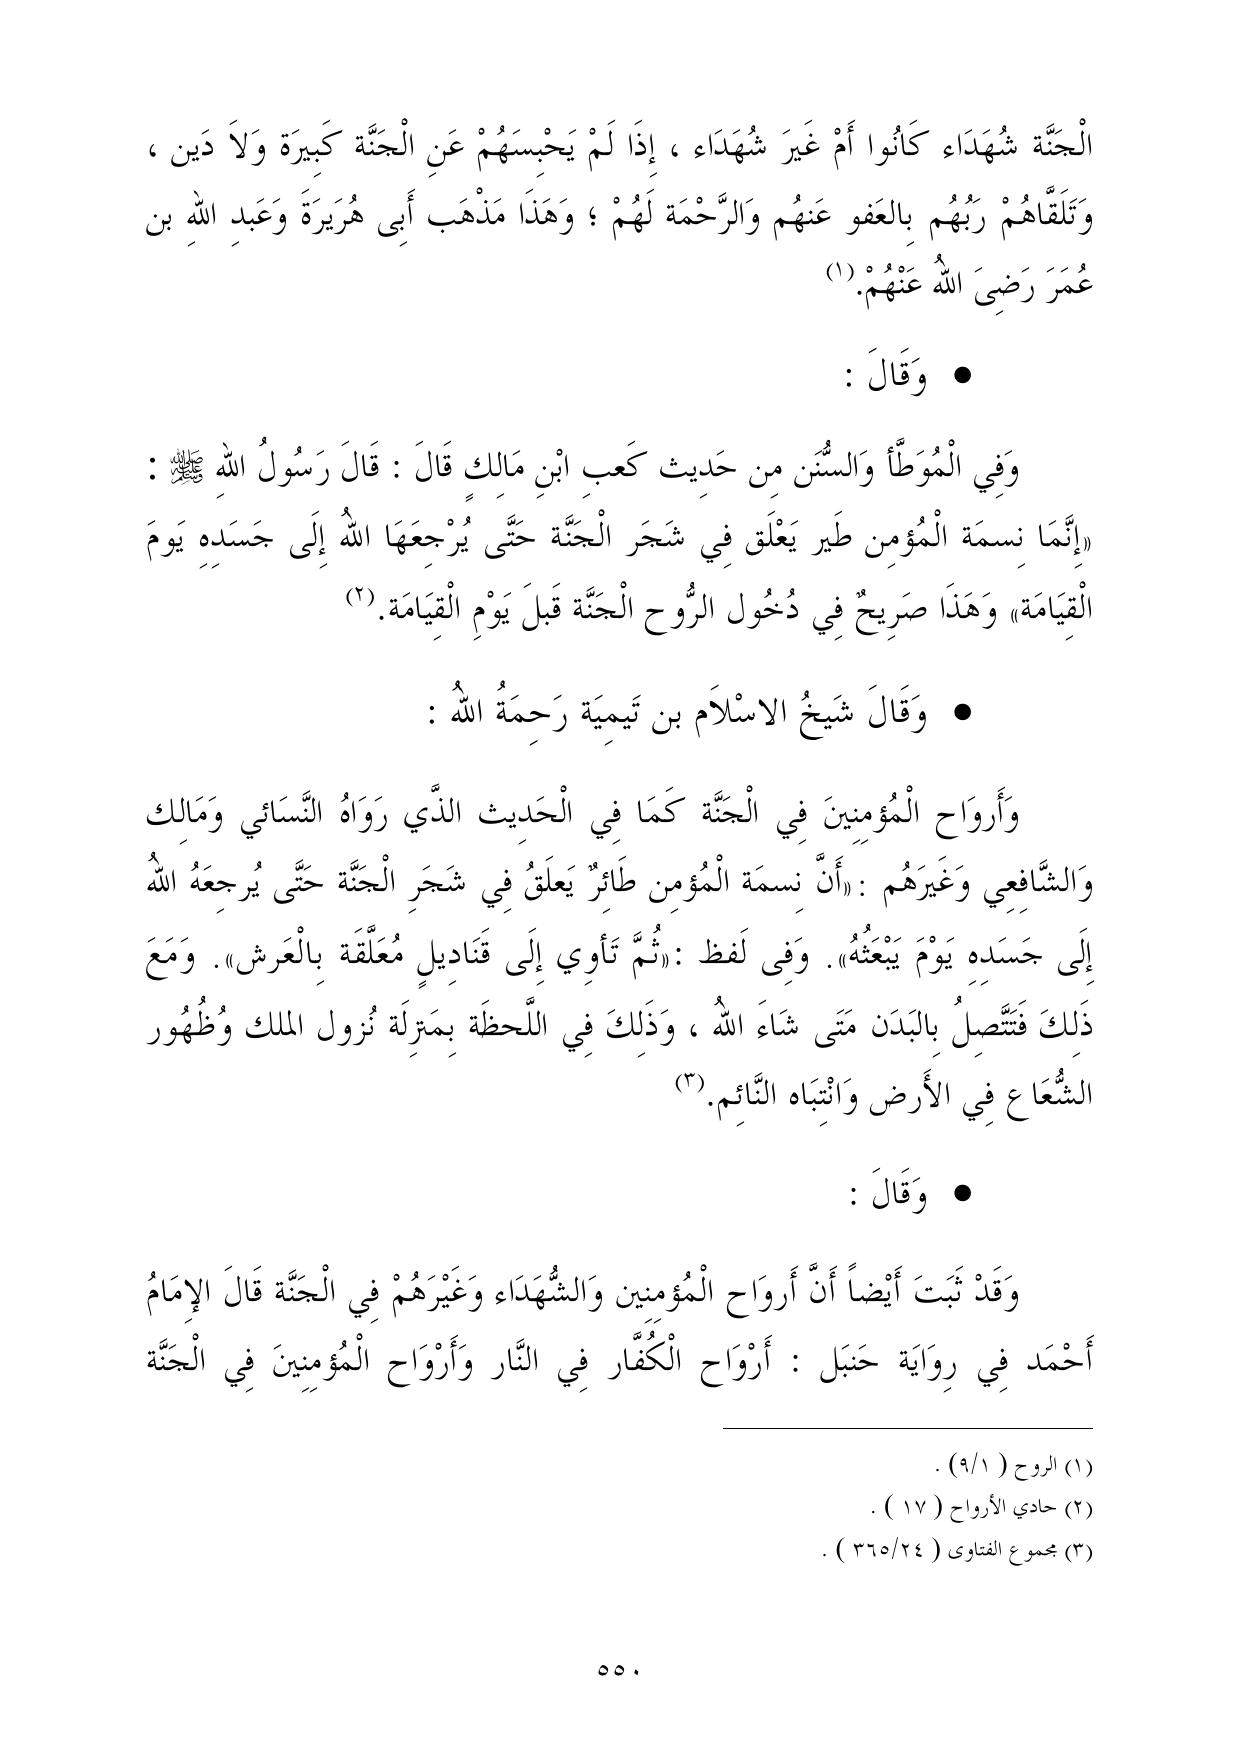 الْجَنَّة شُهَدَاء كَانُوا أَمْ غَيرَ شُهَدَاء ، إِذَا لَمْ يَحْبِسَهُمْ عَنِ الْجَنَّة كَبِيرَة وَلاَ دَين ،
وَتَلَقَّاهُمْ رَبُهُم بِالعَفو عَنهُم وَالرَّحْمَة لَهُمْ ؛ وَهَذَا مَذْهَب أَبِى هُرَيرَةَ وَعَبدِ اللهِ بن
عُمَرَ رَضِىَ اللهُ عَنْهُمْ.(١)
● وَقَالَ :
وَفِي الْمُوَطَّأ وَالسُّنَن مِن حَدِيث كَعبِ ابْنِ مَالِكٍ قَالَ : قَالَ رَسُولُ اللهِ ﷺ :
«إِنَّمَا نِسمَة الْمُؤمِن طَير يَعْلَق فِي شَجَر الْجَنَّة حَتَّى يُرْجِعَهَا اللهُ إِلَى جَسَدِهِ يَومَ
الْقِيَامَة» وَهَذَا صَرِيحٌ فِي دُخُول الرُّوح الْجَنَّة قَبلَ يَوْمِ الْقِيَامَة.(٢)
● وَقَالَ شَيخُ الاسْلاَم بن تَيمِيَة رَحِمَةُ اللهُ :
وَأَروَاح الْمُؤمِنِينَ فِي الْجَنَّة كَمَا فِي الْحَدِيث الذَّي رَوَاهُ النَّسَائي وَمَالِك
وَالشَّافِعِي وَغَيرَهُم :«أَنَّ نِسمَة الْمُؤمِن طَائِرٌ يَعلَقُ فِي شَجَرِ الْجَنَّة حَتَّى يُرجِعَهُ اللهُ
إِلَى جَسَدِهِ يَوْمَ يَبْعَثُهُ». وَفِى لَفظ :«ثُمَّ تَأوِي إِلَى قَنَادِيلٍ مُعَلَّقَة بِالْعَرش». وَمَعَ
ذَلِكَ فَتَتَّصِلُ بِالبَدَن مَتَى شَاءَ اللهُ ، وَذَلِكَ فِي اللَّحظَة بِمَنزِلَة نُزول الملك وُظُهُور
الشُّعَاع فِي الأَرض وَانْتِبَاه النَّائِم.(٣)
● وَقَالَ :
وَقَدْ ثَبَتَ أَيْضاً أَنَّ أَروَاح الْمُؤمِنِين وَالشُّهَدَاء وَغَيْرَهُمْ فِي الْجَنَّة قَالَ الإِمَامُ
أَحْمَد فِي رِوَايَة حَنبَل : أَرْوَاح الْكُفَّار فِي النَّار وَأَرْوَاح الْمُؤمِنِينَ فِي الْجَنَّة
(١) الروح ( ٩/١) .
(٢) حادي الأرواح ( ١٧ ) .
(٣) مجموع الفتاوى ( ٣٦٥/٢٤ ) .
٥٥٠